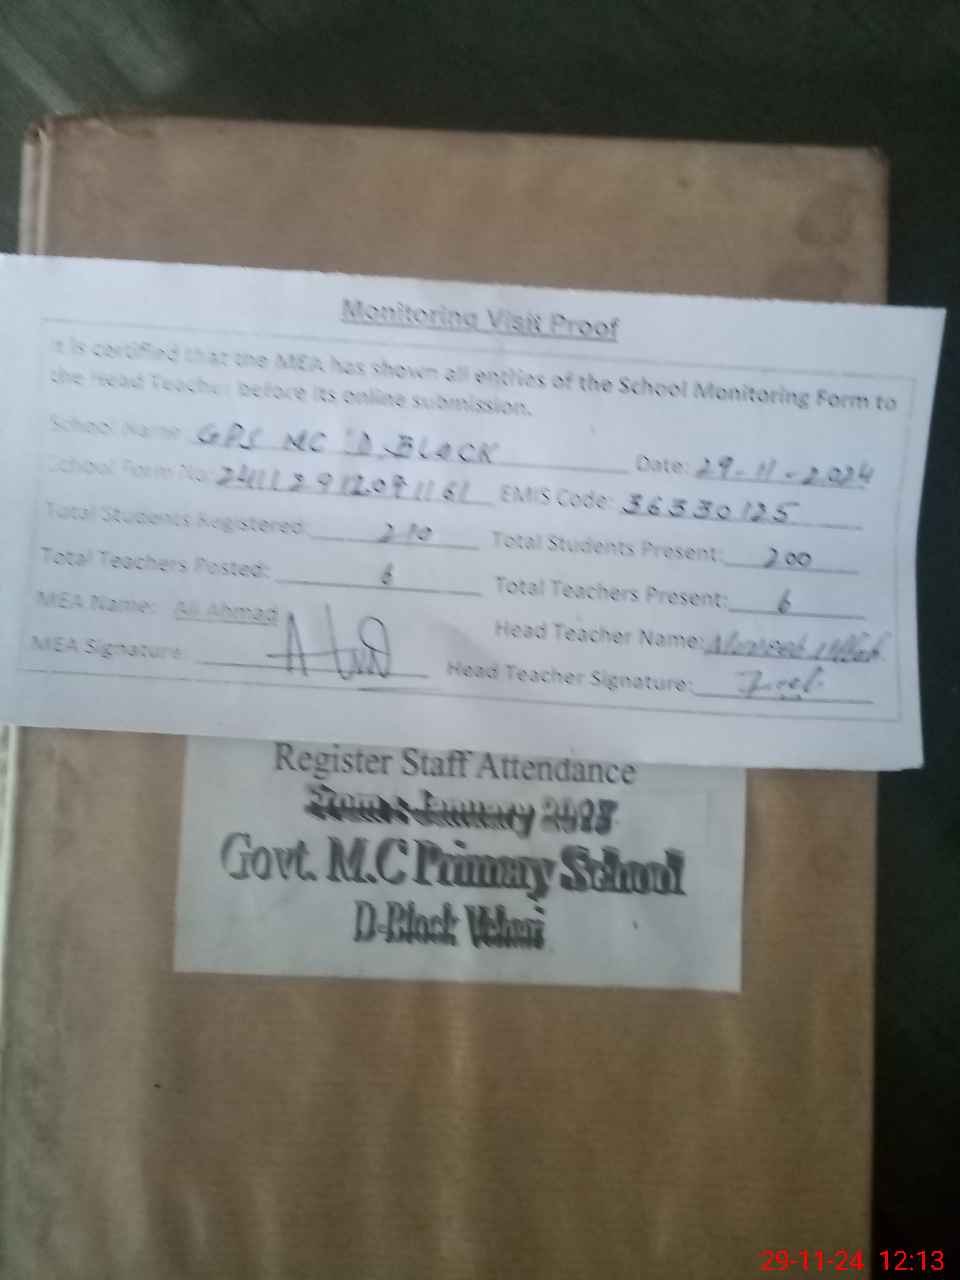 Monitoring Visit Proof
It is certified that the MEA has shown all entries of the School Monitoring Form to
the Head Teacher before its online submission.
School Name: GPS MC D BLOCK Date: 29-11-2024
School Form No: EMIS Code: 36330125
Total Students Registered: 210 Total Students Present: 200
Total Teachers Posted: 6 Total Teachers Present: 6
MEA Name: Ali Ahmad Head Teacher Name:
MEA Signature: Head Teacher Signature:
Register Staff Attendance
January
Govt. M.C Primary School
D-Block Vehari
29-11-24 12:13